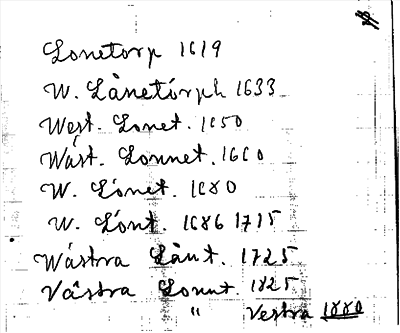 Lonetorp 1619
W. Lånetórph 1633
West. Lonet. 1650
Wäst. Lonnet. 1660
W. Lónet. 1680
W. Lónt. 1686 1715
Wästra Lånt. 1725
Västra Lonnt 1825
" Vestra 1880